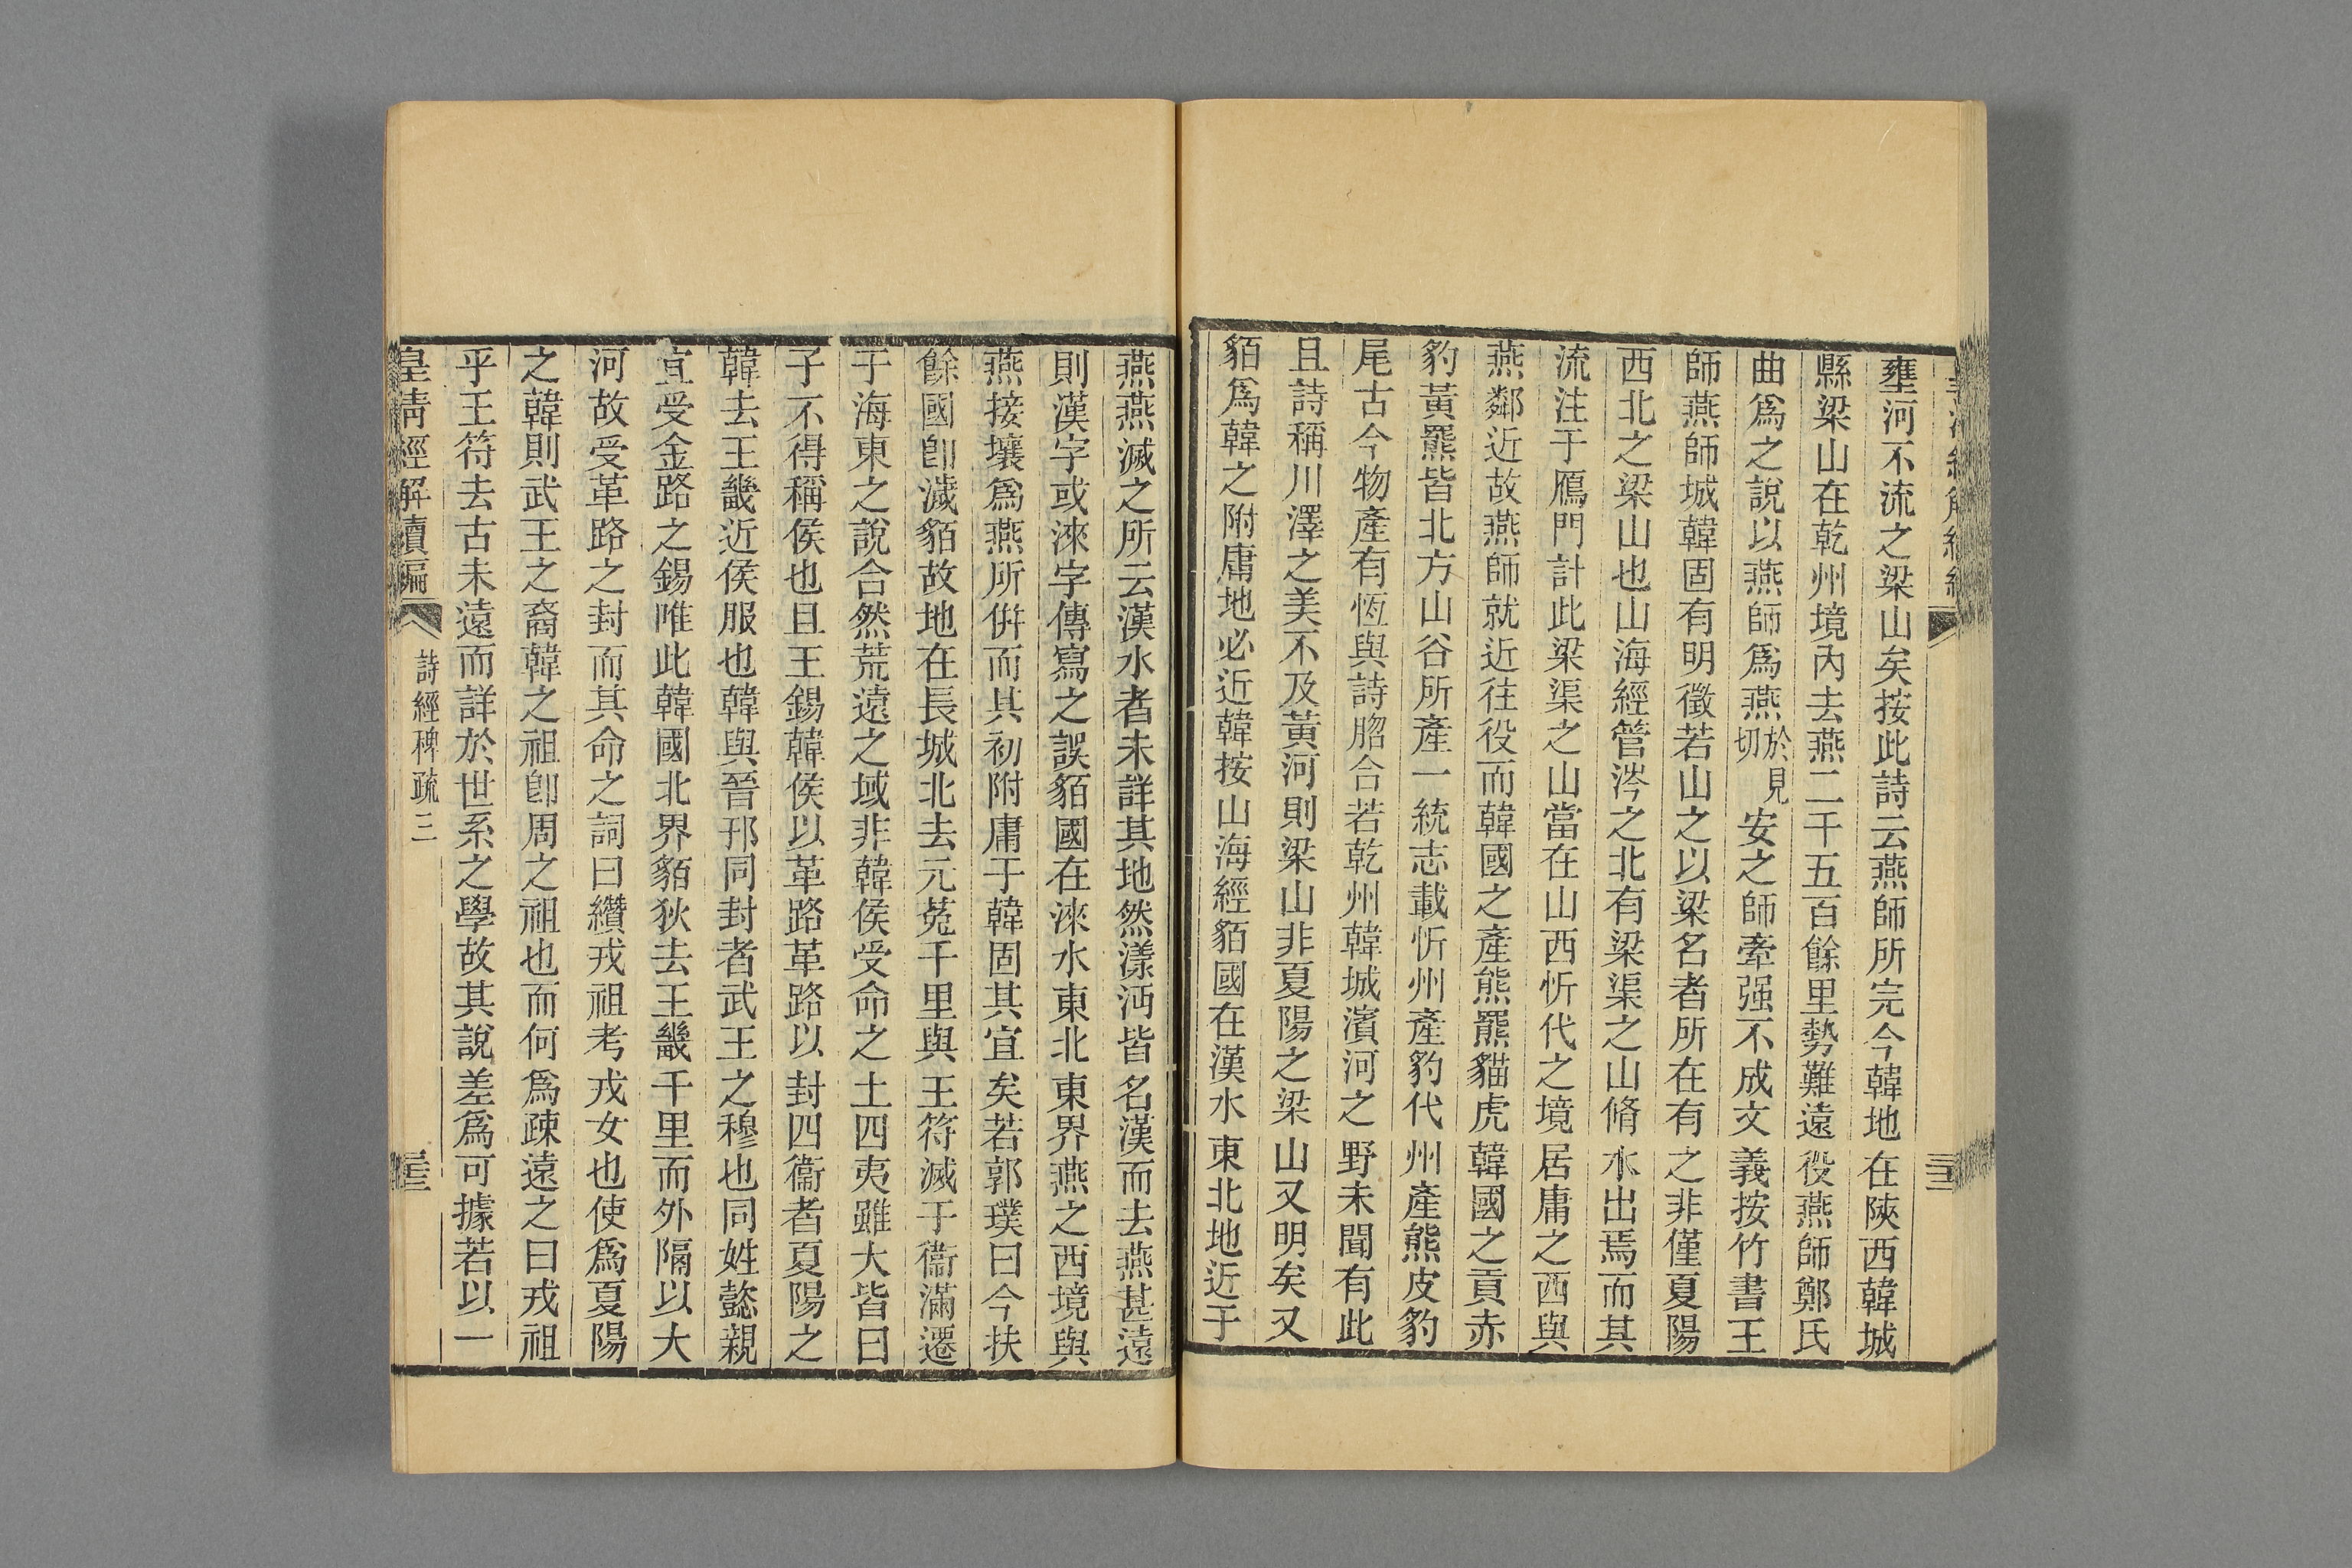 壅河不流之梁山矣按此詩云燕師所完今韓地在陝西韓城
縣梁山在乾州境內去燕二千五百餘里勢難遠役燕師鄭氏
曲爲之說以燕師爲燕於見切安之師牽强不成文義按竹書王
師燕師城韓固有明徵若山之以梁名者所在有之非僅夏陽
西北之梁山也山海經管涔之北有梁渠之山脩水出焉而其
流注于鴈門計此梁渠之山當在山西忻代之境居庸之西與
燕鄰近故燕師就近往役而韓國之產熊羆貓虎韓國之貢赤
豹黃羆皆北方山谷所產一統志載忻州產豹代州產熊皮豹
尾古今物產有恆與詩脗合若乾州韓城濱河之野未聞有此
且詩稱川澤之美不及黃河則梁山非夏陽之梁山又明矣又
貊爲韓之附庸地必近韓按山海經貊國在漢水東北地近于
燕燕滅之所云漢水者未詳其地然漾沔皆名漢而去燕甚遠
則漢字或淶字傳寫之誤貊國在淶水東北東界燕之西境與
燕接壤爲燕所併而其初附庸于韓固其宜矣若郭璞曰今扶
餘國卽濊貊故地在長城北去元菟千里與王符滅于衞滿遷
于海東之說合然荒遠之域非韓侯受命之土四夷雖大皆曰
子不得稱侯也且王錫韓侯以革路革路以封四衞者夏陽之
韓去王畿近侯服也韓與晉邘同封者武王之穆也同姓懿親
宜受金路之錫唯此韓國北界貊狄去王畿千里而外隔以大
河故受革路之封而其命之詞曰纘戎祖考戎女也使爲夏陽
之韓則武王之裔韓之祖卽周之祖也而何爲疎遠之曰戎祖
乎王符去古未遠而詳於世系之學故其說差爲可據若以一
皇清經解續編
詩經稗疏三